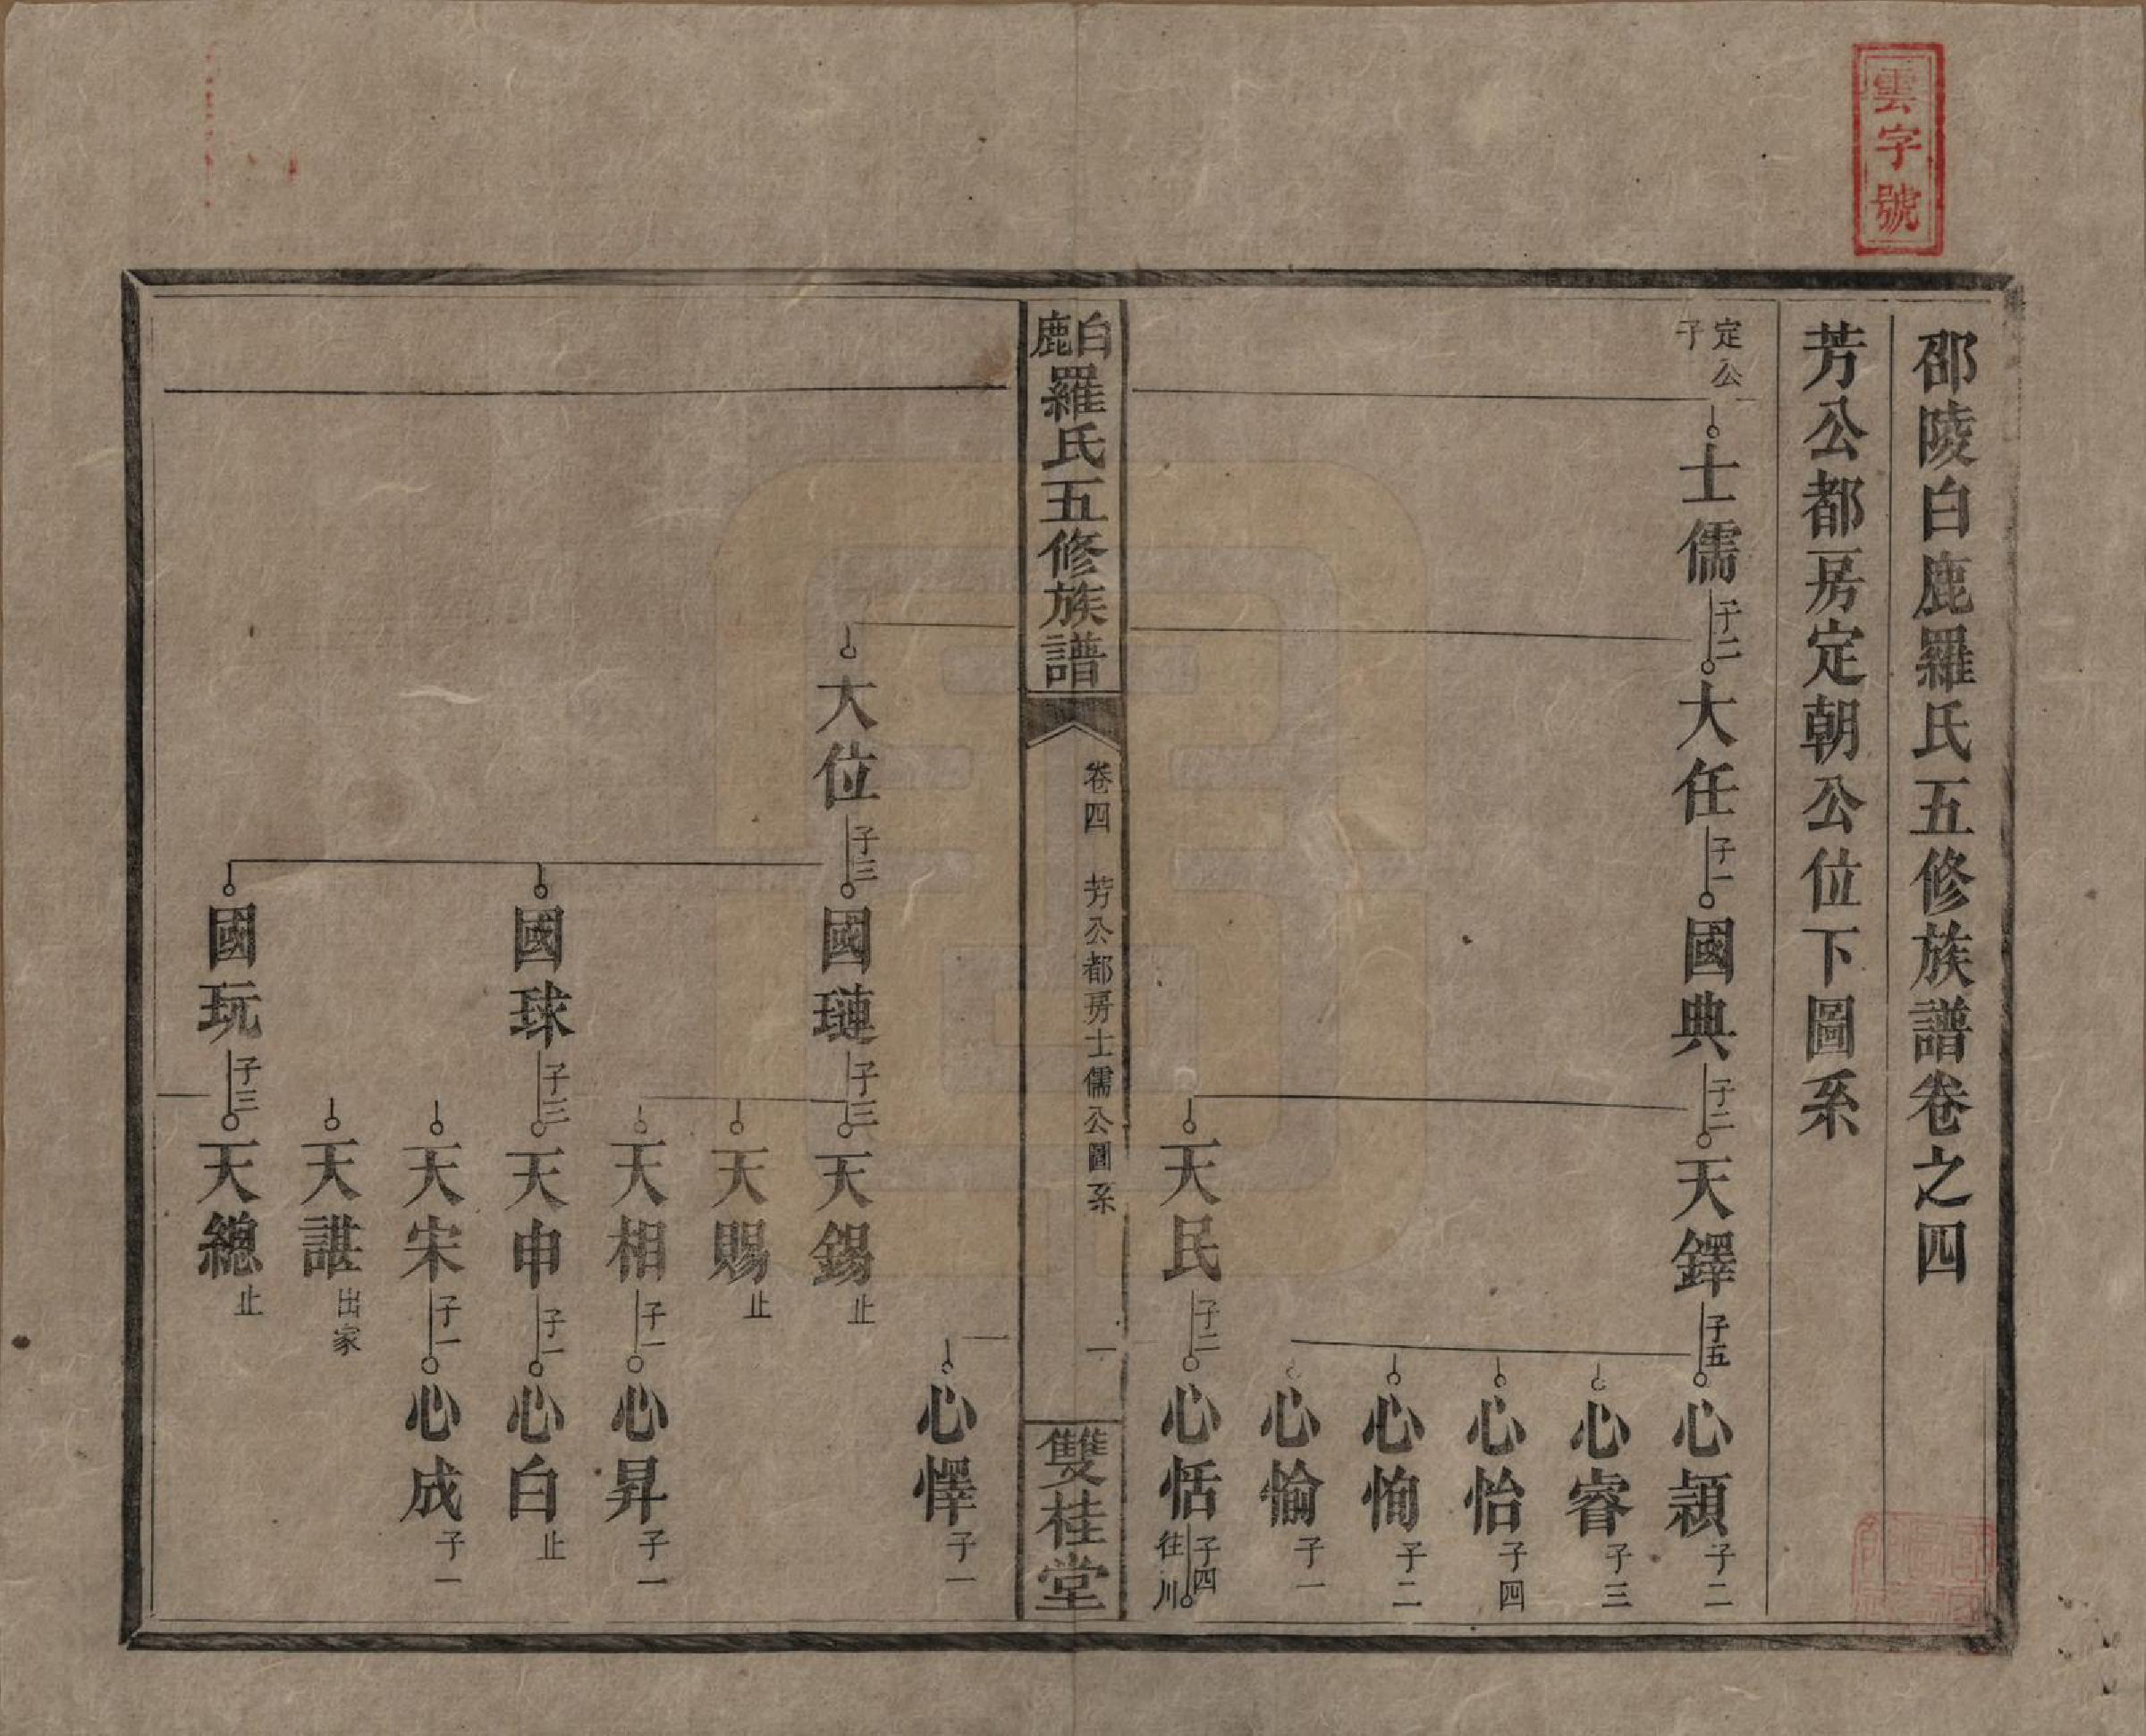 雲字號
邵陵白鹿羅氏五修族譜卷之四
芳公都房定朝公位下圖系
定公子
士儒 子二
大任 子一
國典 子二
天鐸 子五
心穎 子二
心睿 子三
心怡 子四
心恂 子二
心愉 子一
天民 子二
心恬 子四 往川
白鹿羅氏五修族譜
卷四 芳公都房士儒公圖系
一
雙桂堂
心懌 子一
大位 子三
國璉 子三
天錫 止
天賜 止
天相 子一
心昇 子一
國球 子三
天申 子一
心白 止
天宋 子一
心成 子一
天諶 出家
國玩 子三
天總 止